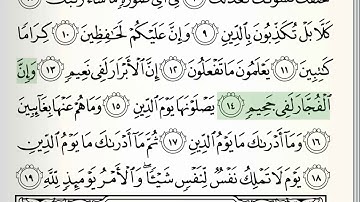 خَلَقَكَ فَسَوَّىٰكَ فَعَدَلَكَ ۝٧ فِىٓ أَىِّ صُورَةٍ مَّا شَآءَ رَكَّبَكَ ۝٨
كَلَّا بَلْ تُكَذِّبُونَ بِٱلدِّينِ ۝٩ وَإِنَّ عَلَيْكُمْ لَحَٰفِظِينَ ۝١٠ كِرَامًا
كَٰتِبِينَ ۝١١ يَعْلَمُونَ مَا تَفْعَلُونَ ۝١٢ إِنَّ ٱلْأَبْرَارَ لَفِى نَعِيمٍ ۝١٣ وَإِنَّ
ٱلْفُجَّارَ لَفِى جَحِيمٍ ۝١٤ يَصْلَوْنَهَا يَوْمَ ٱلدِّينِ ۝١٥ وَمَا هُمْ عَنْهَا بِغَآئِبِينَ
۝١٦ وَمَآ أَدْرَىٰكَ مَا يَوْمُ ٱلدِّينِ ۝١٧ ثُمَّ مَآ أَدْرَىٰكَ مَا يَوْمُ ٱلدِّينِ
۝١٨ يَوْمَ لَا تَمْلِكُ نَفْسٌ لِّنَفْسٍ شَيْـًٔا ۖ وَٱلْأَمْرُ يَوْمَئِذٍ لِّلَّهِ ۝١٩